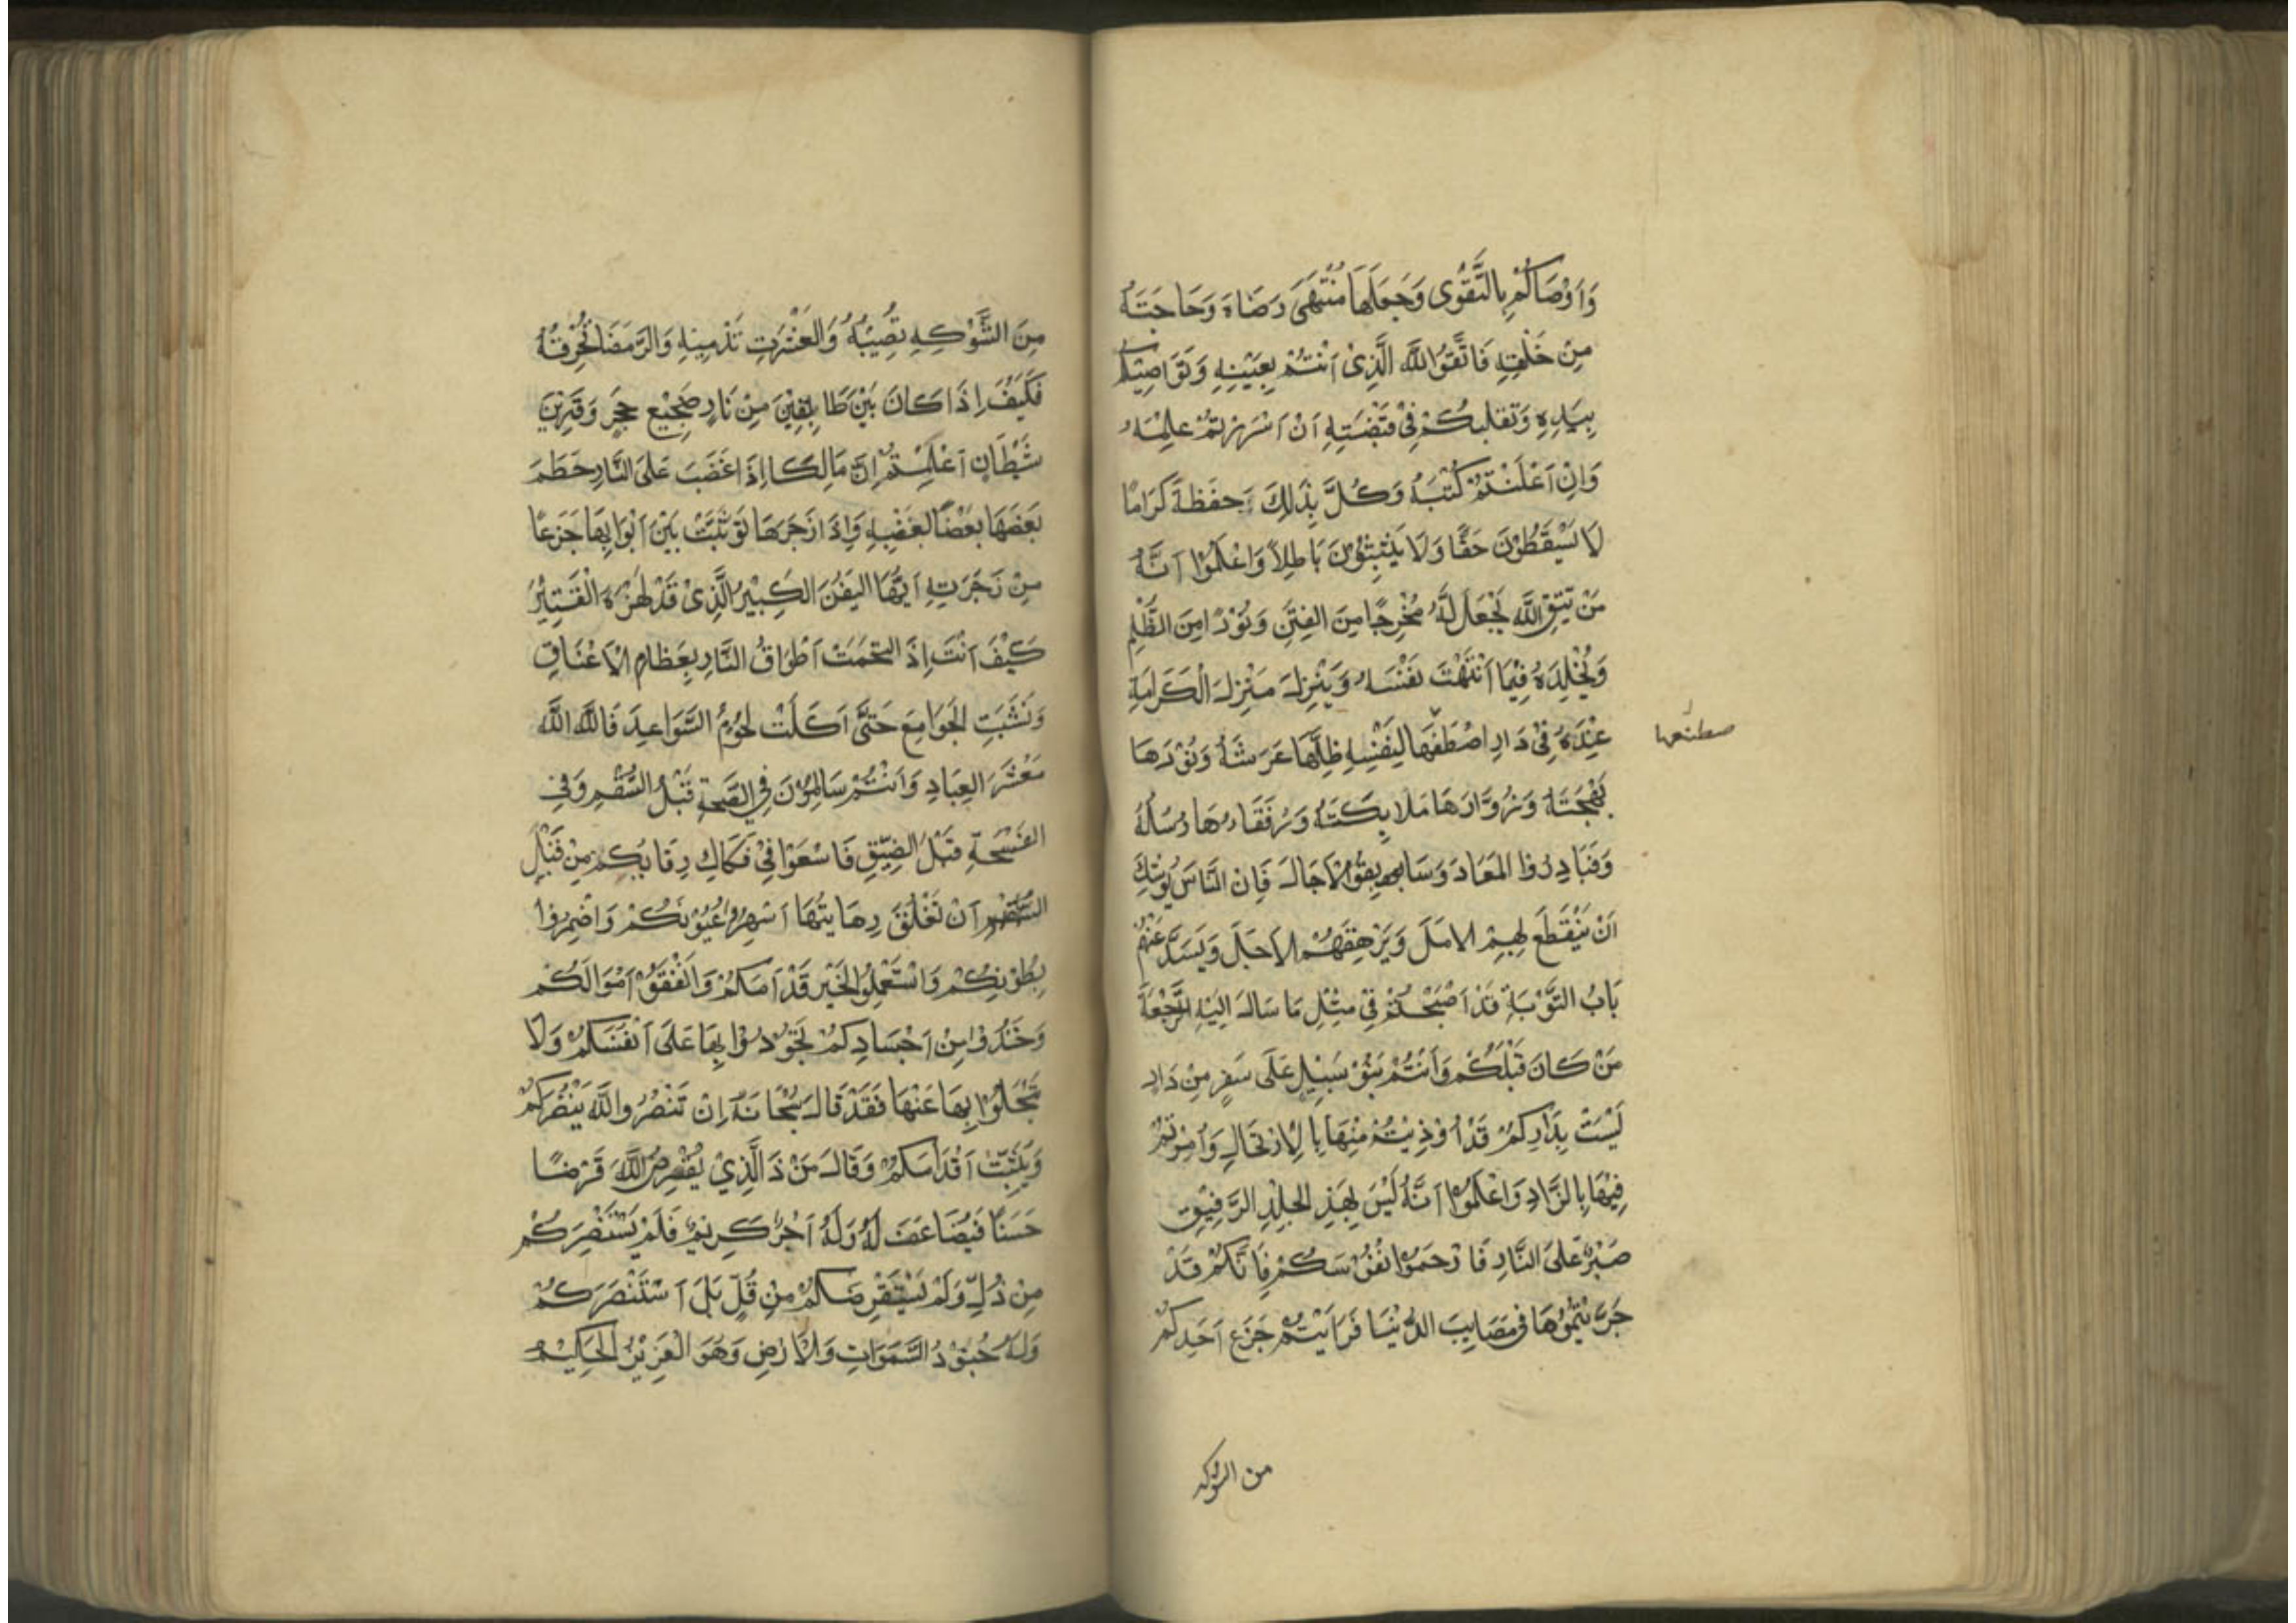 وَاَوْصَاكُمْ بِالتَّقْوٰى وَجَعَلَهَا مُنْتَهَى رِضَاهُ وَحَاجَتَهُ
مِنْ خَلْقِهِ فَاتَّقُوا اللَّهَ الَّذِىْ اَنْتُمْ بِعَيْنِهِ وَنَوَاصِيْكُمْ
بِيَدِهِ وَتَقَلُّبُكُمْ فِىْ قَبْضَتِهِ اَنْ اَسْرَرْتُمْ عَلِمَهُ
وَاِنْ اَعْلَنْتُمْ كَتَبَهُ وَكُلَّ بِذٰلِكَ حَفَظَةً كَرَامًا
لَا يَسْقُطُوْنَ حَقًّا وَلَا يُثْبِتُوْنَ بَاطِلًا وَاعْلَمُوْا اَنَّهُ
مَنْ يَتَّقِ اللَّهَ يَجْعَلْ لَهُ مَخْرَجًا مِنَ الْفِتَنِ وَنُوْرًا مِنَ الظُّلَمِ
وَيُخَلِّدْهُ فِيْمَا اشْتَهَتْ نَفْسَهُ وَيُنْزِلْهُ مَنْزِلَ الْكَرَامَةِ
عِنْدَهُ فِىْ دَارٍ اصْطَفٰهَا لِنَفْسِهِ ظِلُّهَا عَرْشُهُ وَنُوْرُهَا
صطنعها
بَهْجَتُهُ وَزُوَّارُهَا مَلَائِكَتُهُ وَرُفَقَاءُهَا رُسُلُهُ
وَفَبَادِرُوا الْمَعَادَ وَسَابِقُوْا الْاَجَالَ فَاِنَّ النَّاسَ يُوْشِكُ
اَنْ يَنْقَطِعَ بِهِمْ الْاَمَلُ وَيَرْهَقَهُمُ الْاَجَلُ وَيُسَدَّ عَنْهُمْ
بَابُ التَّوْبَةِ فَقَدْ اَصْبَحْتُمْ فِىْ مِثْلِ مَا سَالَ اِلَيْهِ الرَّجْعَةَ
مَنْ كَانَ قَبْلَكُمْ وَاَنْتُمْ بَنُوْ سَبِيْلٍ عَلَى سَفَرٍ مِنْ دَارٍ
لَيْسَتْ بِدَارِكُمْ قَدْ اُوْذِنْتُمْ مِنْهَا بِالْاِرْتِحَالِ وَاُمِرْتُمْ
فِيْهَا بِالزَّادِ وَاعْلَمُوْا اَنَّهُ لَيْسَ لِهٰذِ الْجِلْدِ الرَّقِيْقِ
صَبْرٌ عَلَى النَّارِ فَارْحَمُوْا نُفُوْسَكُمْ فَاِنَّكُمْ قَدْ
جَرَّبْتُمُوْهَا فِىْ مَصَايِبِ الدُّنْيَا فَرَاَيْتُمْ جَزَعَ اَحَدِكُمْ
من الشوكه
مِنَ الشَّوْكَةِ تُصِيْبُهُ وَالْعَثْرَتِ تُدْمِيْهِ وَالرَّمَضَا تُحْرِقُهُ
فَكَيْفَ اِذَا كَانَ بَيْنَ طَابِقَيْنِ مِنْ نَارٍ ضَجِيْعَ حَجَرٍ وَقَرِيْنَ
شَيْطَانٍ اَعَلِمْتُمْ اِنَّ مَالِكًا اِذَا غَضِبَ عَلَى النَّارِ حَطَمَ
بَعْضَهَا بَعْضًا لِغَضَبِهِ وَاِذَا زَجَرَهَا تَوَثَّبَتْ بَيْنَ اَبْوَابِهَا جَزَعًا
مِنْ زَجْرَتِهِ اَيُّهَا الْيَفَنُ الْكَبِيْرُ الَّذِىْ قَدْ لَهَزَهُ الْقَتِيْرُ
كَيْفَ اَنْتَ اِذَا الْتَحَمَتْ اَطْوَاقُ النَّارِ بِعِظَامِ الْاَعْنَاقِ
وَنَشِبَتِ الْجَوَامِعُ حَتَّى اَكَلَتْ لُحُوْمُ السَّوَاعِدِ فَاللَّهَ اللَّهَ
مَعْشَرَ الْعِبَادِ وَاَنْتُمْ سَالِمُوْنَ فِى الصِّحَّةِ قَبْلَ السُّقْمِ وَفِى
الْفُسْحَةِ قَبْلَ الضِّيْقِ فَاسْعَوْا فِىْ فَكَاكِ رِقَابِكُمْ مِنْ قَبْلِ
اَنْ تَغْلَقَ رِهَايِنُهَا اَسْهِرُوْا عُيُوْنَكُمْ وَاضْمِرُوْا
بُطُوْنِكُمْ وَاسْتَعْمِلُوا الْخَيْرَ قَدْاَمَكُمْ وَانْفِقُوْ اَمْوَالَكُمْ
وَخُذُوْا مِنْ اَجْسَادِكُمْ تَجُوْدُوْا بِهَا عَلَى اَنْفُسِكُمْ وَلَا
تَبْخَلُوْا بِهَا عَنْهَا فَقَدْ قَالَ سُبْحَانَهُ اِنْ تَنْصُرُوا اللَّهَ يَنْصُرْكُمْ
وَيُثَبِّتْ اَقْدَامَكُمْ وَقَالَ مَنْ ذَالَّذِيْ يُقْرِضُ اللَّهَ قَرْضًا
حَسَنًا فَيُضَاعِفَ لَهُ وَلَهُ اَجْرٌ كَرِيْمٌ فَلَمْ يَسْتَنْصِرْكُمْ
مِنْ ذُلٍّ وَلَمْ يَسْتَقْرِضْكُمْ مِنْ قُلٍّ بَلْ اَسْتَنْصَرَكُمْ
وَلَهُ جُنُوْدُ السَّمٰوَاتِ وَالْاَرْضِ وَهُوَ الْعَزِيْزُ الْحَكِيْمُ